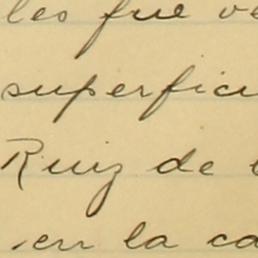 les fue ve
superfici
Ruiz de
en la ca